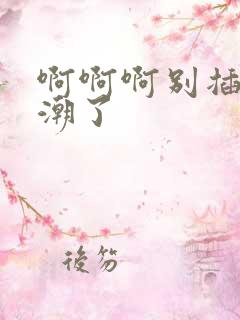 啊啊啊别插
潮了
後笏